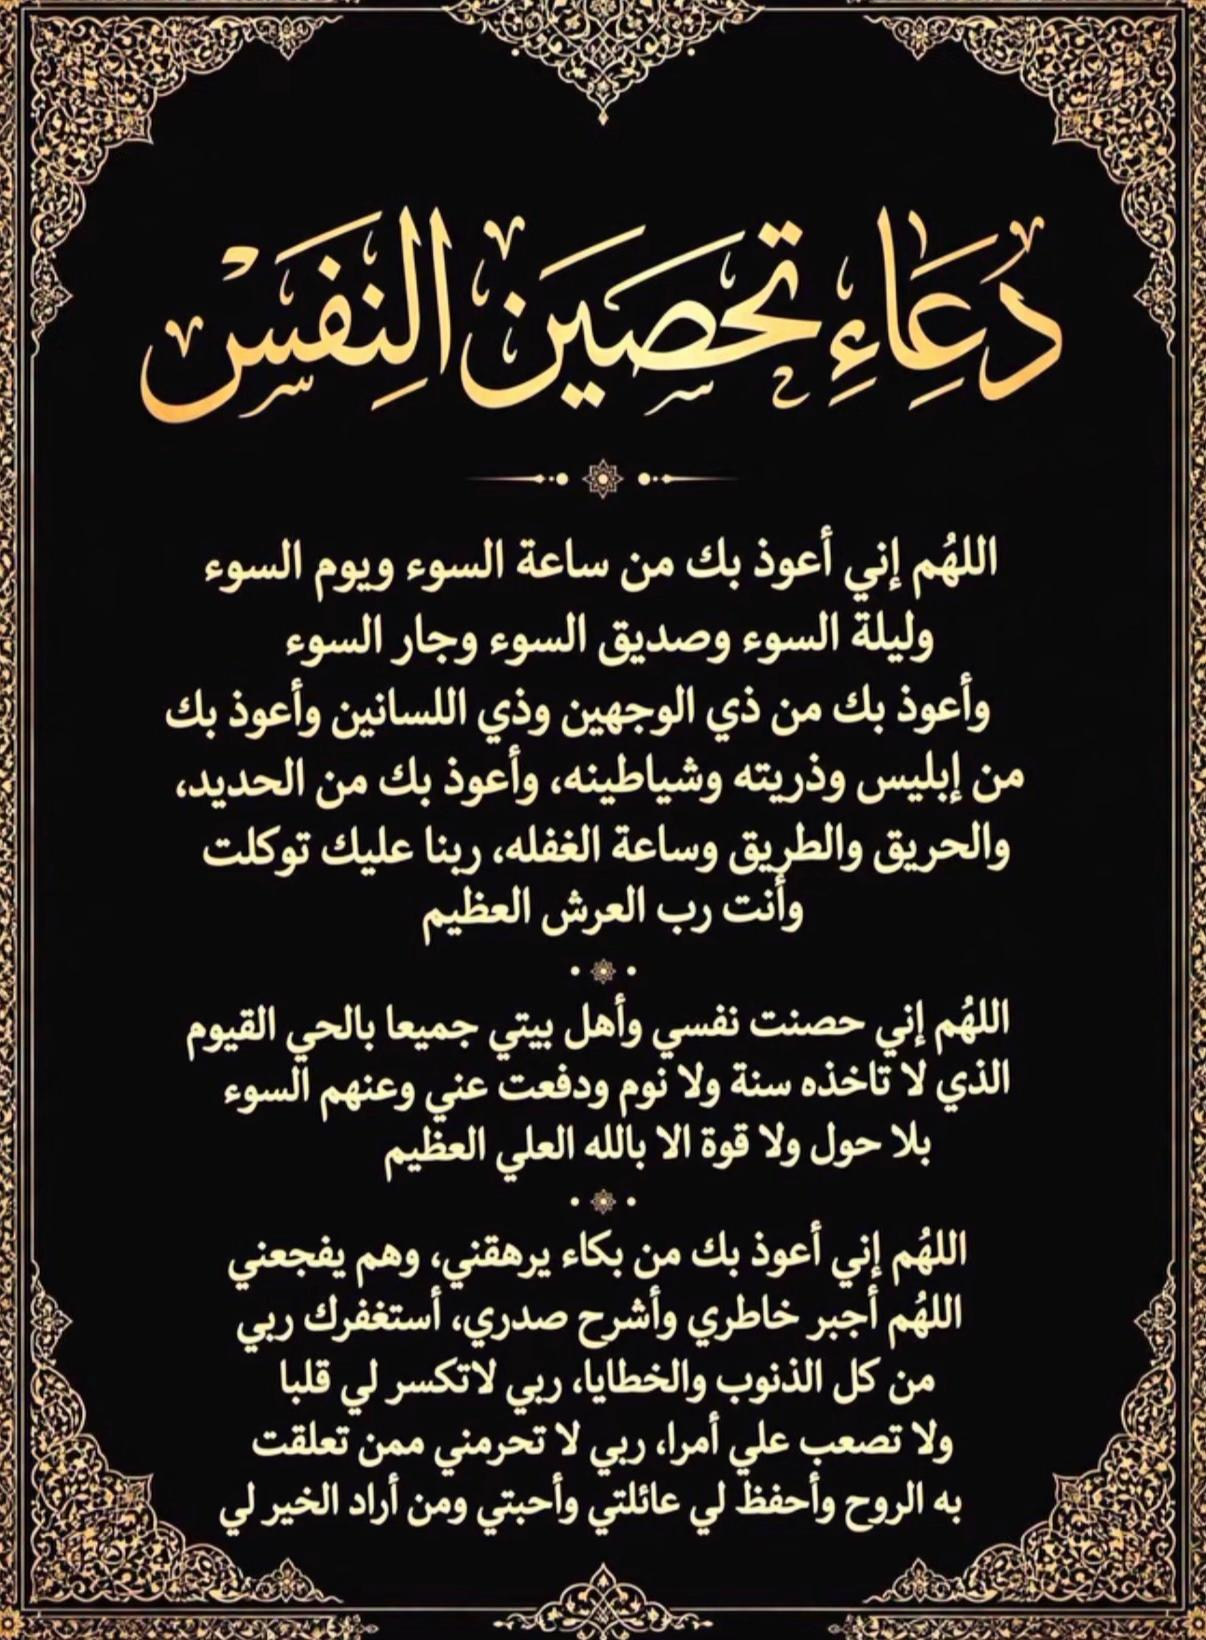 دُعَاءِ تحصَين النِفَسْ
اللهُم إني أعوذ بك من ساعة السوء ويوم السوء
وليلة السوء وصديق السوء وجار السوء
وأعوذ بك من ذي الوجهين وذي اللسانين وأعوذ بك
من إبليس وذريته وشياطينه، وأعوذ بك من الحديد،
والحريق والطريق وساعة الغفله، ربنا عليك توكلت
وأنت رب العرش العظيم
اللهُم إني حصنت نفسي وأهل بيتي جميعا بالحي القيوم
الذي لا تاخذه سنة ولا نوم ودفعت عني وعنهم السوء
بلا حول ولا قوة الا بالله العلي العظيم
اللهُم إني أعوذ بك من بكاء يرهقني، وهم يفجعني
اللهُم أجبر خاطري وأشرح صدري، أستغفرك ربي
من كل الذنوب والخطايا، ربي لاتكسر لي قلبا
ولا تصعب علي أمرا، ربي لا تحرمني ممن تعلقت
به الروح وأحفظ لي عائلتي وأحبتي ومن أراد الخير لي